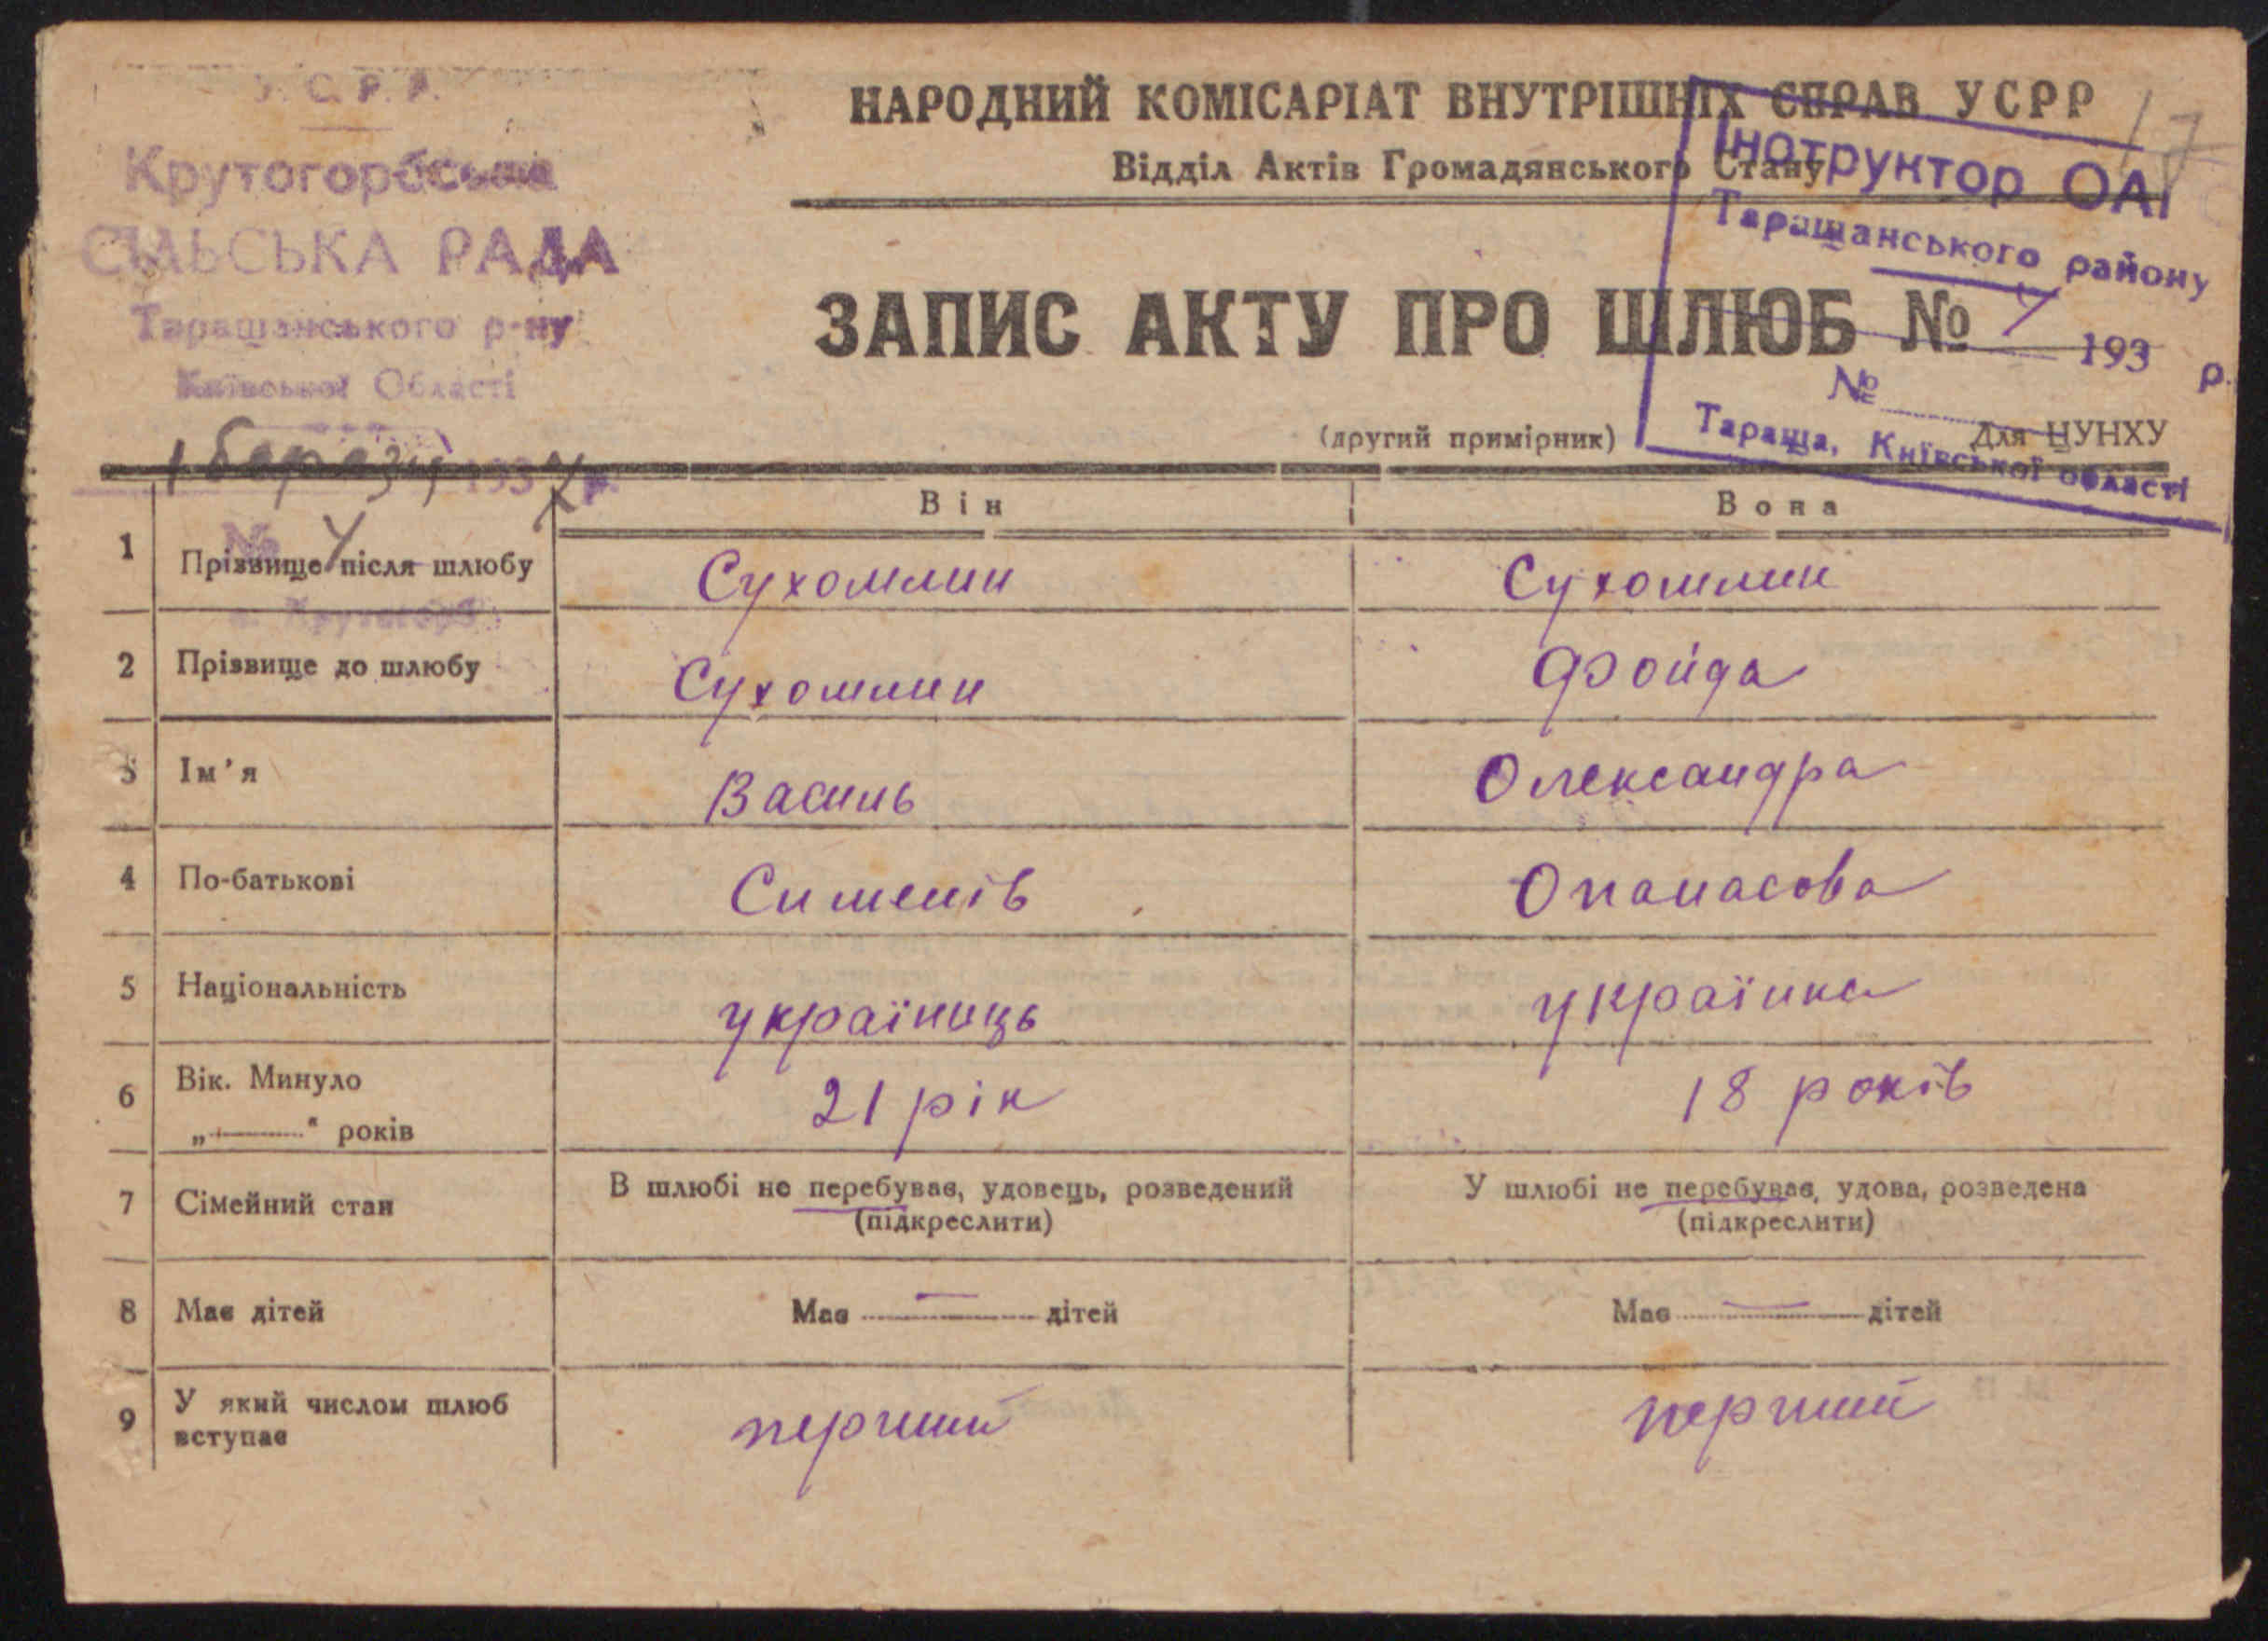 У. С. Р. Р.
Крутогорбська
СІЛЬСЬКА РАДА
Таращанського р-ну
Київської Області
1 березня 1937 р.
№ 4
с. Крутогорб
НАРОДНИЙ КОМІСАРІАТ ВНУТРІШНІХ СПРАВ УСРР
17
Відділ Актів Громадянського Стану
Інструктор ОАГС
Таращанського району
193 р.
№
Тараща, Київської області
ЗАПИС АКТУ ПРО ШЛЮБ № 4
(другий примірник) Для ЦУНХУ
Він Вона
1 Прізвище після шлюбу Сухомлин Сухомлин
2 Прізвище до шлюбу Сухомлин Фойда
3 Ім'я Василь Олександра
4 По-батькові Сименів Опанасова
5 Національність україниць українка
6 Вік. Минуло
„———" років 21 рік 18 років
7 Сімейний стан В шлюбі не перебуває, удовець, розведений У шлюбі не перебуває, удова, розведена
(підкреслити) (підкреслити)
8 Має дітей Має — дітей Має — дітей
9 У який числом шлюб
вступає перший перший